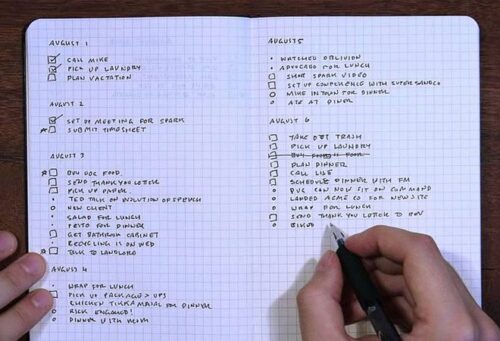 AUGUST 1
CALL MIKE
PICK UP LAUNDRY
PLAN VACTATION
AUGUST 2
SET UP MEETING FOR SPARK
SUBMIT TIMESHEET
AUGUST 3
BUY DOG FOOD
SEND THANK YOU LETTER
PICK UP PAPER
TED TALK ON EVOLUTION OF SPEECH
NEW CLIENT
SALAD FOR LUNCH
PESTO FOR DINNER
GET BATHROOM CABINET
RECYCLING IS ON WED
TALK TO LANDLORD
AUGUST 4
WRAP FOR LUNCH
PICK UP PACKAGE > UPS
CHICKEN TIKKA MASAL FOR DINNER
RICK ENGAGED!
DINNER WITH MOM
AUGUST 5
WATCHED OBLIVION
AVOCADO FOR LUNCH
SHOOT SPARK VIDEO
SET UP CONFERENCE WITH SUPER
MIKE IN TOWN FOR DINNER
ATE AT DINER
AUGUST 6
TAKE OUT TRASH
PICK UP LAUNDRY
BUY FOOD
PLAN DINNER
CALL LISE
SCHEDULE DINNER WITH TM
BUG CAN NOW SIT ON COMMAND
LANDED ACME CO FOR NEW SITE
WRAP FOR LUNCH
SEND THANK YOU LETTER TO BEV